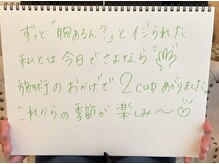 ずっと「胸あるん?」とイジられた
私とは今日でさよなら
施術のおかげで2cupあがりました
これからの季節が楽しみ〜♡